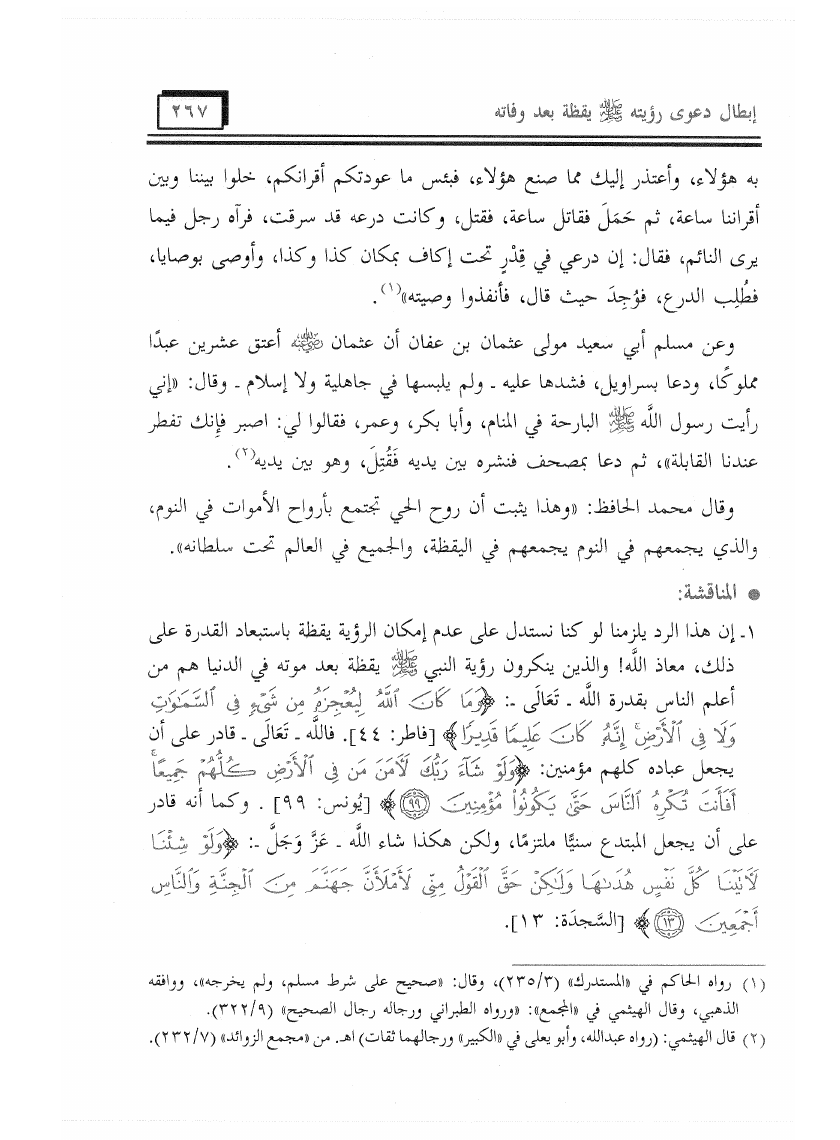 إبطال دعوى رؤيته ﷺ يقظة بعد وفاته
٢٦٧
به هؤلاء، وأعتذر إليك مما صنع هؤلاء، فبئس ما عودتكم أقرانكم، خلوا بيننا وبين
أقراننا ساعة، ثم حَمَلَ فقاتل ساعة، فقتل، وكانت درعه قد سرقت، فرآه رجل فيما
يرى النائم، فقال: إن درعي في قِدْرٍ تحت إكاف بمكان كذا وكذا، وأوصى بوصايا،
فطُلِب الدرع، فوُجِدَ حيث قال، فأنفذوا وصيته»(١).
وعن مسلم أبي سعيد مولى عثمان بن عفان أن عثمان رضي الله عنه أعتق عشرين عبدًا
مملوكًا، ودعا بسراويل، فشدها عليه ـ ولم يلبسها في جاهلية ولا إسلام ـ وقال: «إني
رأيت رسول اللَّه ﷺ البارحة في المنام، وأبا بكر، وعمر، فقالوا لي: اصبر فإنك تفطر
عندنا القابلة»، ثم دعا بمصحف فنشره بين يديه فَقُتِلَ، وهو بين يديه(٢).
وقال محمد الحافظ: «وهذا يثبت أن روح الحي تجتمع بأرواح الأموات في النوم،
والذي يجمعهم في النوم يجمعهم في اليقظة، والجميع في العالم تحت سلطانه».
● المناقشة:
١ـ إن هذا الرد يلزمنا لو كنا نستدل على عدم إمكان الرؤية يقظة باستبعاد القدرة على
ذلك، معاذ اللَّه! والذين ينكرون رؤية النبي ﷺ يقظة بعد موته في الدنيا هم من
أعلم الناس بقدرة اللَّه ـ تَعَالَى ـ: ﴿وَمَا كَانَ ٱللَّهُ لِيُعْجِزَهُۥ مِن شَىْءٍ فِى ٱلسَّمَٰوَٰتِ
وَلَا فِى ٱلْأَرْضِ ۚ إِنَّهُۥ كَانَ عَلِيمًا قَدِيرًا﴾ [فاطر: ٤٤]. فاللَّه ـ تَعَالَى ـ قادر على أن
يجعل عباده كلهم مؤمنين: ﴿وَلَوْ شَآءَ رَبُّكَ لَءَامَنَ مَن فِى ٱلْأَرْضِ كُلُّهُمْ جَمِيعًا ۚ
أَفَأَنتَ تُكْرِهُ ٱلنَّاسَ حَتَّىٰ يَكُونُوا۟ مُؤْمِنِينَ ٩٩﴾ [يُونس: ٩٩] . وكما أنه قادر
على أن يجعل المبتدع سنيًّا ملتزمًا، ولكن هكذا شاء اللَّه ـ عَزَّ وَجَلَّ ـ: ﴿وَلَوْ شِئْنَا
لَءَاتَيْنَا كُلَّ نَفْسٍ هُدَىٰهَا وَلَٰكِنْ حَقَّ ٱلْقَوْلُ مِنِّى لَأَمْلَأَنَّ جَهَنَّمَ مِنَ ٱلْجِنَّةِ وَٱلنَّاسِ
أَجْمَعِينَ ١٣﴾ [السَّجدَة: ١٣].
(١) رواه الحاكم في «المستدرك» (٢٣٥/٣)، وقال: «صحيح على شرط مسلم، ولم يخرجه»، ووافقه
الذهبي، وقال الهيثمي في «المجمع»: «ورواه الطبراني ورجاله رجال الصحيح» (٣٢٢/٩).
(٢) قال الهيثمي: (رواه عبدالله، وأبو يعلى في «الكبير» ورجالهما ثقات) اهـ. من «مجمع الزوائد» (٢٣٢/٧).